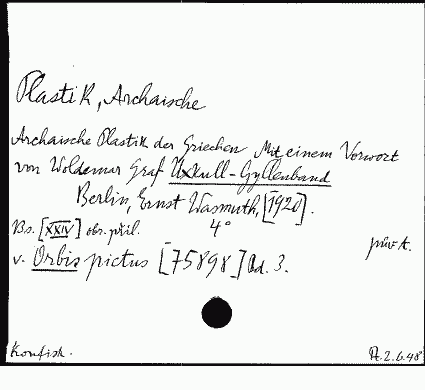 Plastik, Archaische
Archaische Plastik der Griechen Mit einem Vorwort
von Woldemar Graf Uxkull-Gyllenband
Berlin, Ernst Wasmuth, [1920].
Bs. [XXIV] obr. příl. 4°
přív A.
v. Orbis pictus [75898] Bd. 3.
Konfisk.
A. 2.6.48